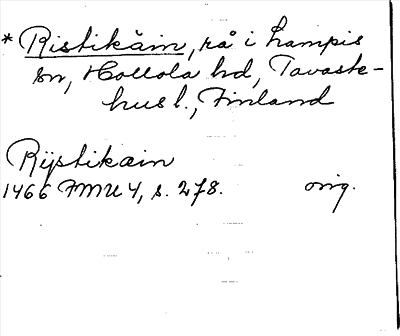 * Ristikäin, rå i Lampis
sn, Hollola hd, Tavaste-
hus l., Finland
Rijstikain
1466 FMU 4, s. 278. orig.